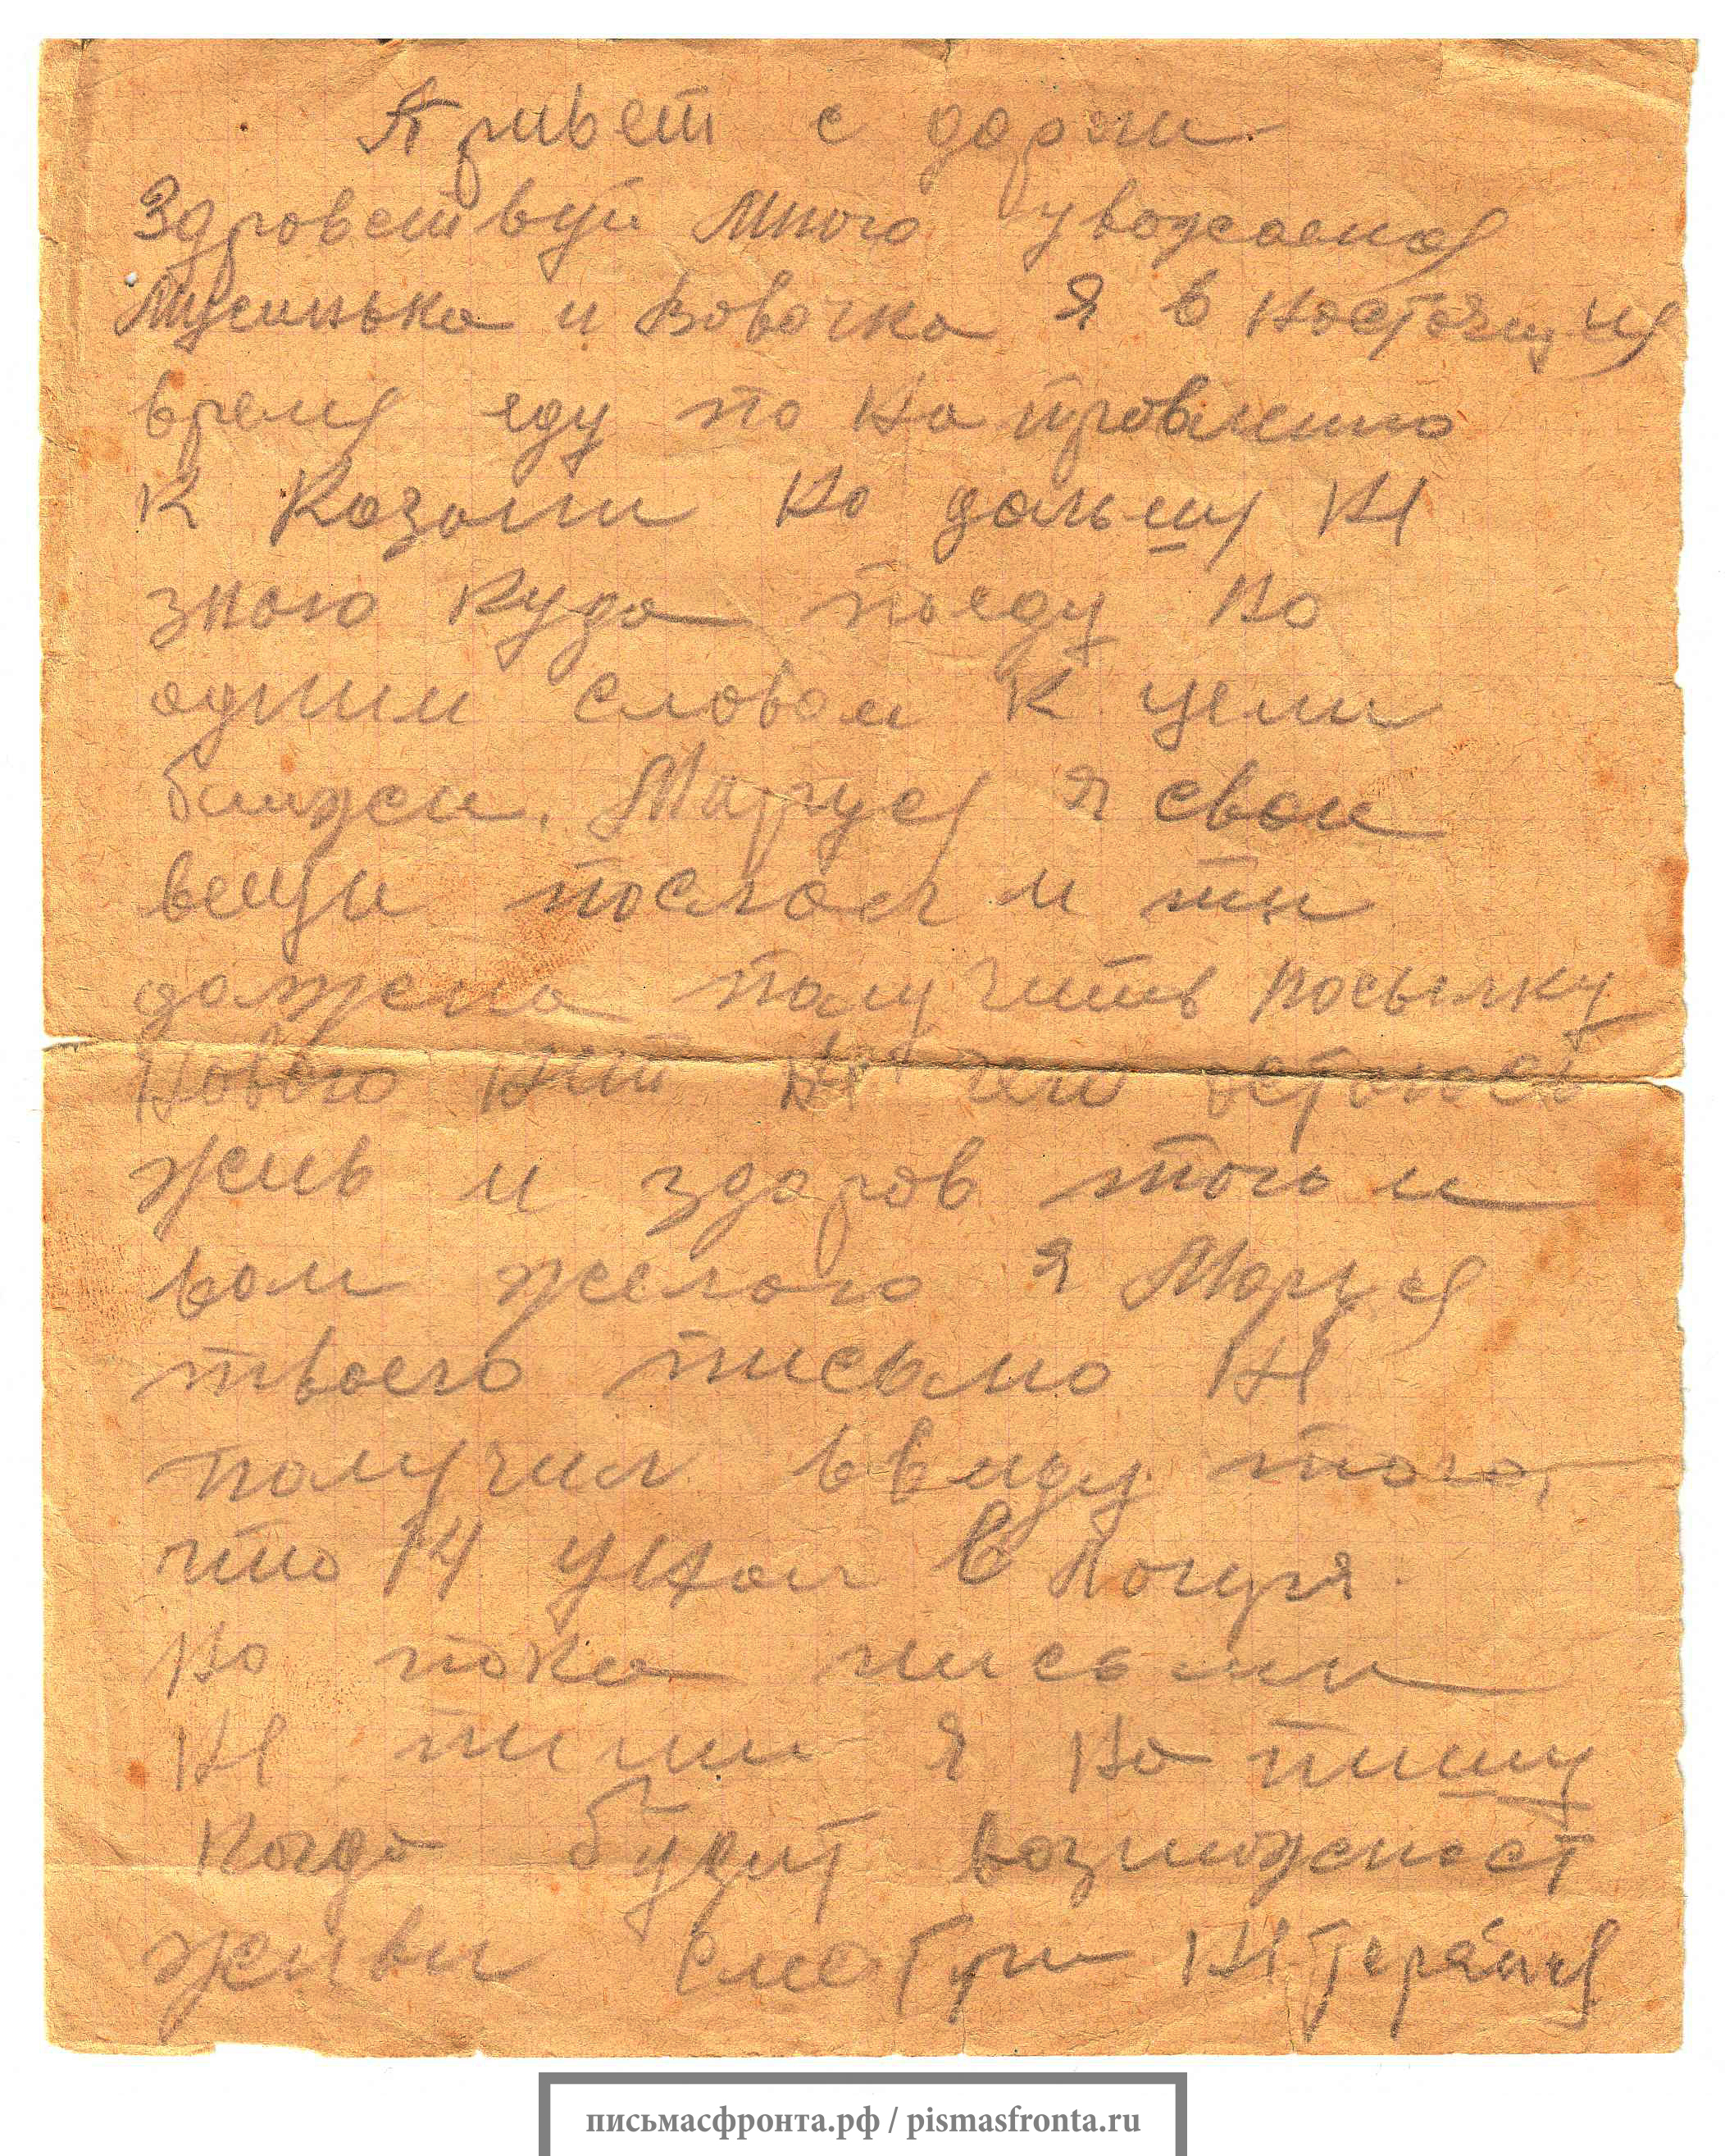 Привет с дороги
Здровствуй много уважаемая
Мусинька и Вовочка я в настоящия
время еду по на правлению
к Казани но дальшу ни
знаю куда поеду но
одним словом к цели
ближи. Маруся я свои
вещи послал и ты
должена получить посылку
Нового нит ни чего остаюсь
жив и здоров того и
вам желаю я Маруся
твоего письмо ни
получил ввиду того,
что 14 уехал в
Но пока письми
ни пиши я на пишу
Когда будит возможност
живи смотри ни теряйся
письмасфронта.рф / pismasfronta.ru